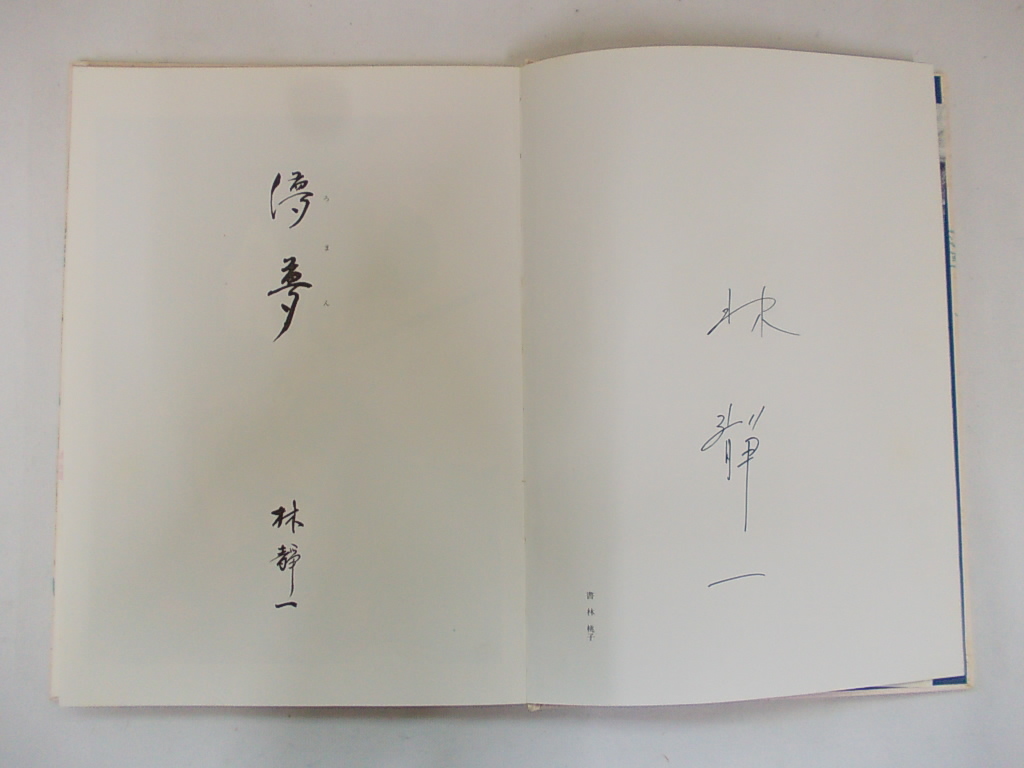 林静一
書 林 桃子
ろまん
儚夢
林静一